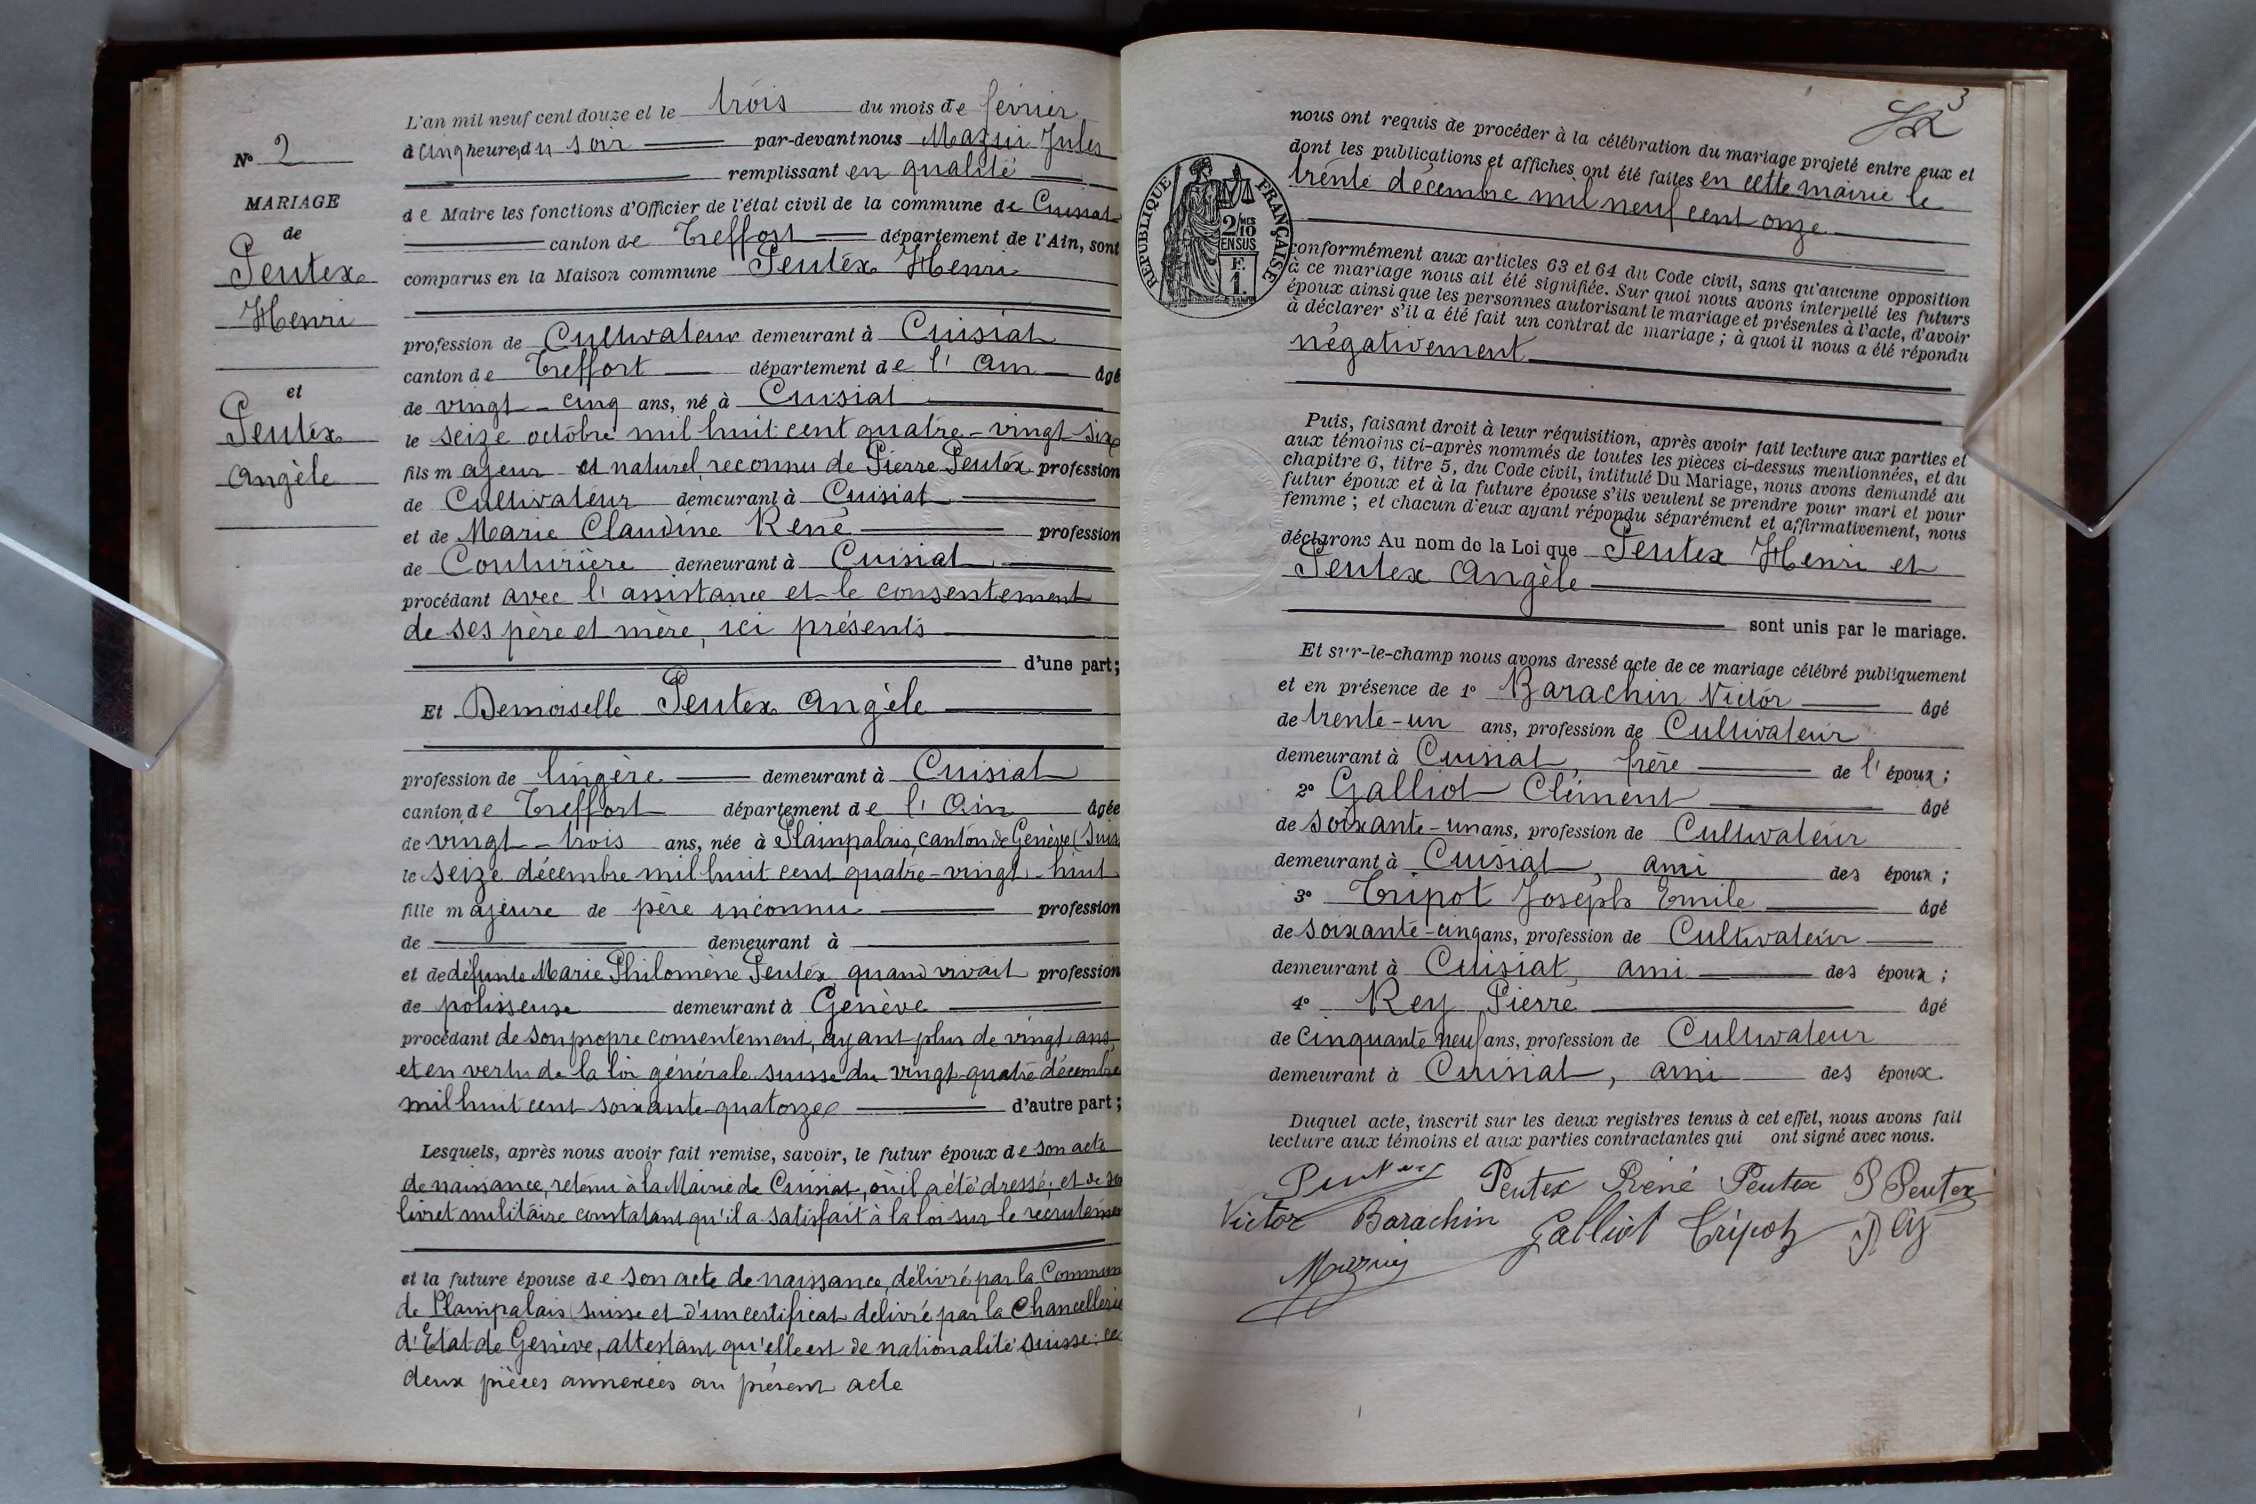 N° 2
MARIAGE
de
Peutex
Henri
et
Peutex
Angèle
L'an mil neuf cent douze et le trois du mois de février
à cinq heures du soir par-devant nous Mazuir Jules
remplissant en qualité
de Maire les fonctions d'Officier de l'état civil de la commune de Cuisiat
canton de Treffort département de l'Ain, sont
comparus en la Maison commune Peutex Henri
profession de Cultivateur demeurant à Cuisiat
canton de Treffort département de l'Ain âgé
de vingt-cinq ans, né à Cuisiat
le seize octobre mil huit cent quatre-vingt six
fils majeur et naturel reconnu de Pierre Peutex profession
de Cultivateur demeurant à Cuisiat
et de Marie Claudine René profession
de Couturière demeurant à Cuisiat
procédant avec l'assistance et le consentement
de ses père et mère, ici présents
d'une part;
Et Demoiselle Peutex Angèle
profession de lingère demeurant à Cuisiat
canton de Treffort département de l'Ain âgée
de vingt-trois ans, née à Plainpalais, canton de Genève (Suis
le seize décembre mil huit cent quatre-vingt-huit
fille majeure de père inconnu profession
de demeurant à
et de défunte Marie Philomène Peutex, quand vivait profession
de polisseuse demeurant à Genève
procédant de son propre consentement, ayant plus de vingt ans,
et en vertu de la loi générale suisse du vingt-quatre décembre
mil huit cent soixante-quatorze d'autre part;
Lesquels, après nous avoir fait remise, savoir, le futur époux de son acte
de naissance, retenu à la Mairie de Cuisiat, où il a été dressé; et de so
livret militaire constatant qu'il a satisfait à la loi sur le recrutemen
et la future épouse de son acte de naissance, délivré par la Commun
de Plainpalais (Suisse et d'un certificat délivré par la Chancellerie
d'Etat de Genève, attestant qu'elle est de nationalité Suisse; ce
deux pièces annexées au présent acte
3
nous ont requis de procéder à la célébration du mariage projeté entre eux et
dont les publications et affiches ont été faites en cette mairie le
trente décembre mil neuf cent onze
RÉPUBLIQUE FRANÇAISE
2/10 MES
EN SUS
F.
1.
conformément aux articles 63 et 64 du Code civil, sans qu'aucune opposition
à ce mariage nous ait été signifiée. Sur quoi nous avons interpellé les futurs
époux ainsi que les personnes autorisant le mariage et présentes à l'acte, d'avoir
à déclarer s'il a été fait un contrat de mariage; à quoi il nous a été répondu
négativement
Puis, faisant droit à leur réquisition, après avoir fait lecture aux parties et
aux témoins ci-après nommés de toutes les pièces ci-dessus mentionnées, et du
chapitre 6, titre 5, du Code civil, intitulé Du Mariage, nous avons demandé au
futur époux et à la future épouse s'ils veulent se prendre pour mari et pour
femme; et chacun d'eux ayant répondu séparément et affirmativement, nous
déclarons Au nom de la Loi que Peutex Henri et
Peutex Angèle
sont unis par le mariage.
Et sur-le-champ nous avons dressé acte de ce mariage célébré publiquement
et en présence de 1° Barachin Victor âgé
de trente-un ans, profession de Cultivateur
demeurant à Cuisiat, frère de l'époux;
2° Galliot Clément âgé
de soixante-un ans, profession de Cultivateur
demeurant à Cuisiat, ami des époux;
3° Tripot Joseph Emile âgé
de soixante-cinq ans, profession de Cultivateur
demeurant à Cuisiat, ami des époux;
4° Rey Pierre âgé
de cinquante neuf ans, profession de Cultivateur
demeurant à Cuisiat, ami des époux.
Duquel acte, inscrit sur les deux registres tenus à cet effet, nous avons fait
lecture aux témoins et aux parties contractantes qui ont signé avec nous.
Peutex Peutex René Peutex P Peutex
Victor Barachin Galliot Tripot